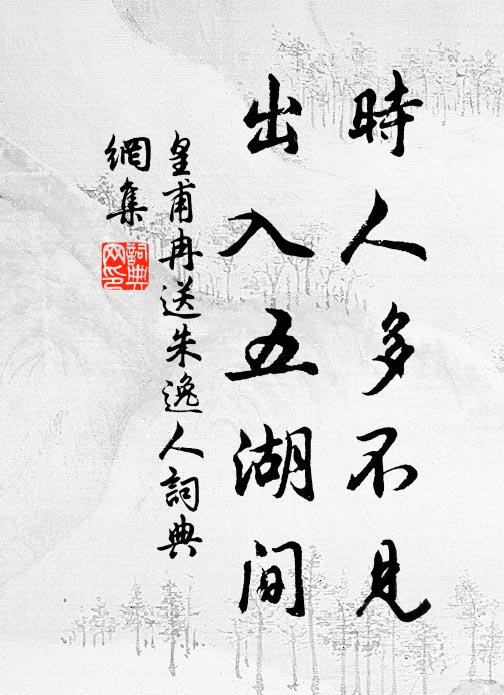 時人多不見
出入五湖間
皇甫冉送朱逸人詞典
網集
詞典網印